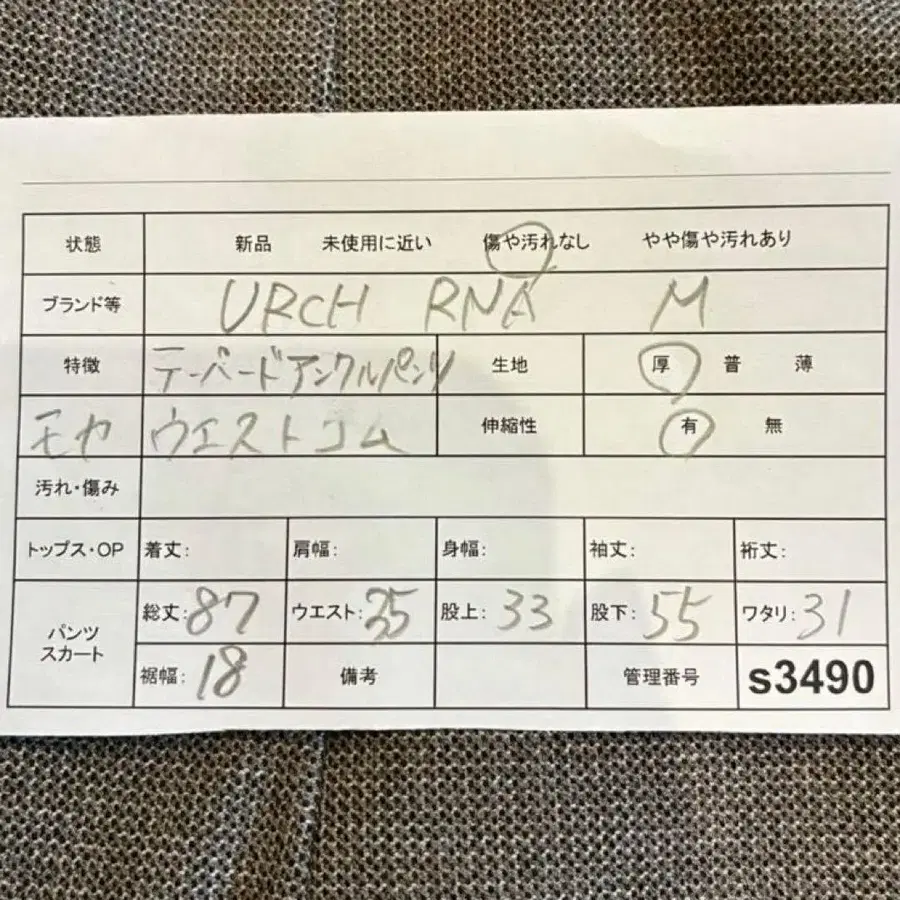 状態 新品 未使用に近い 傷や汚れなし やや傷や汚れあり
ブランド等 URCH RNA M
特徴 テーパードアンクルパンツ 生地 厚 普 薄
モカ ウエストゴム 伸縮性 有 無
汚れ・傷み
トップス・OP 着丈: 肩幅: 身幅: 袖丈: 裄丈:
パンツ スカート 総丈:87 ウエスト:35 股上:33 股下:55 ワタリ:31
裾幅:18 備考 管理番号 s3490